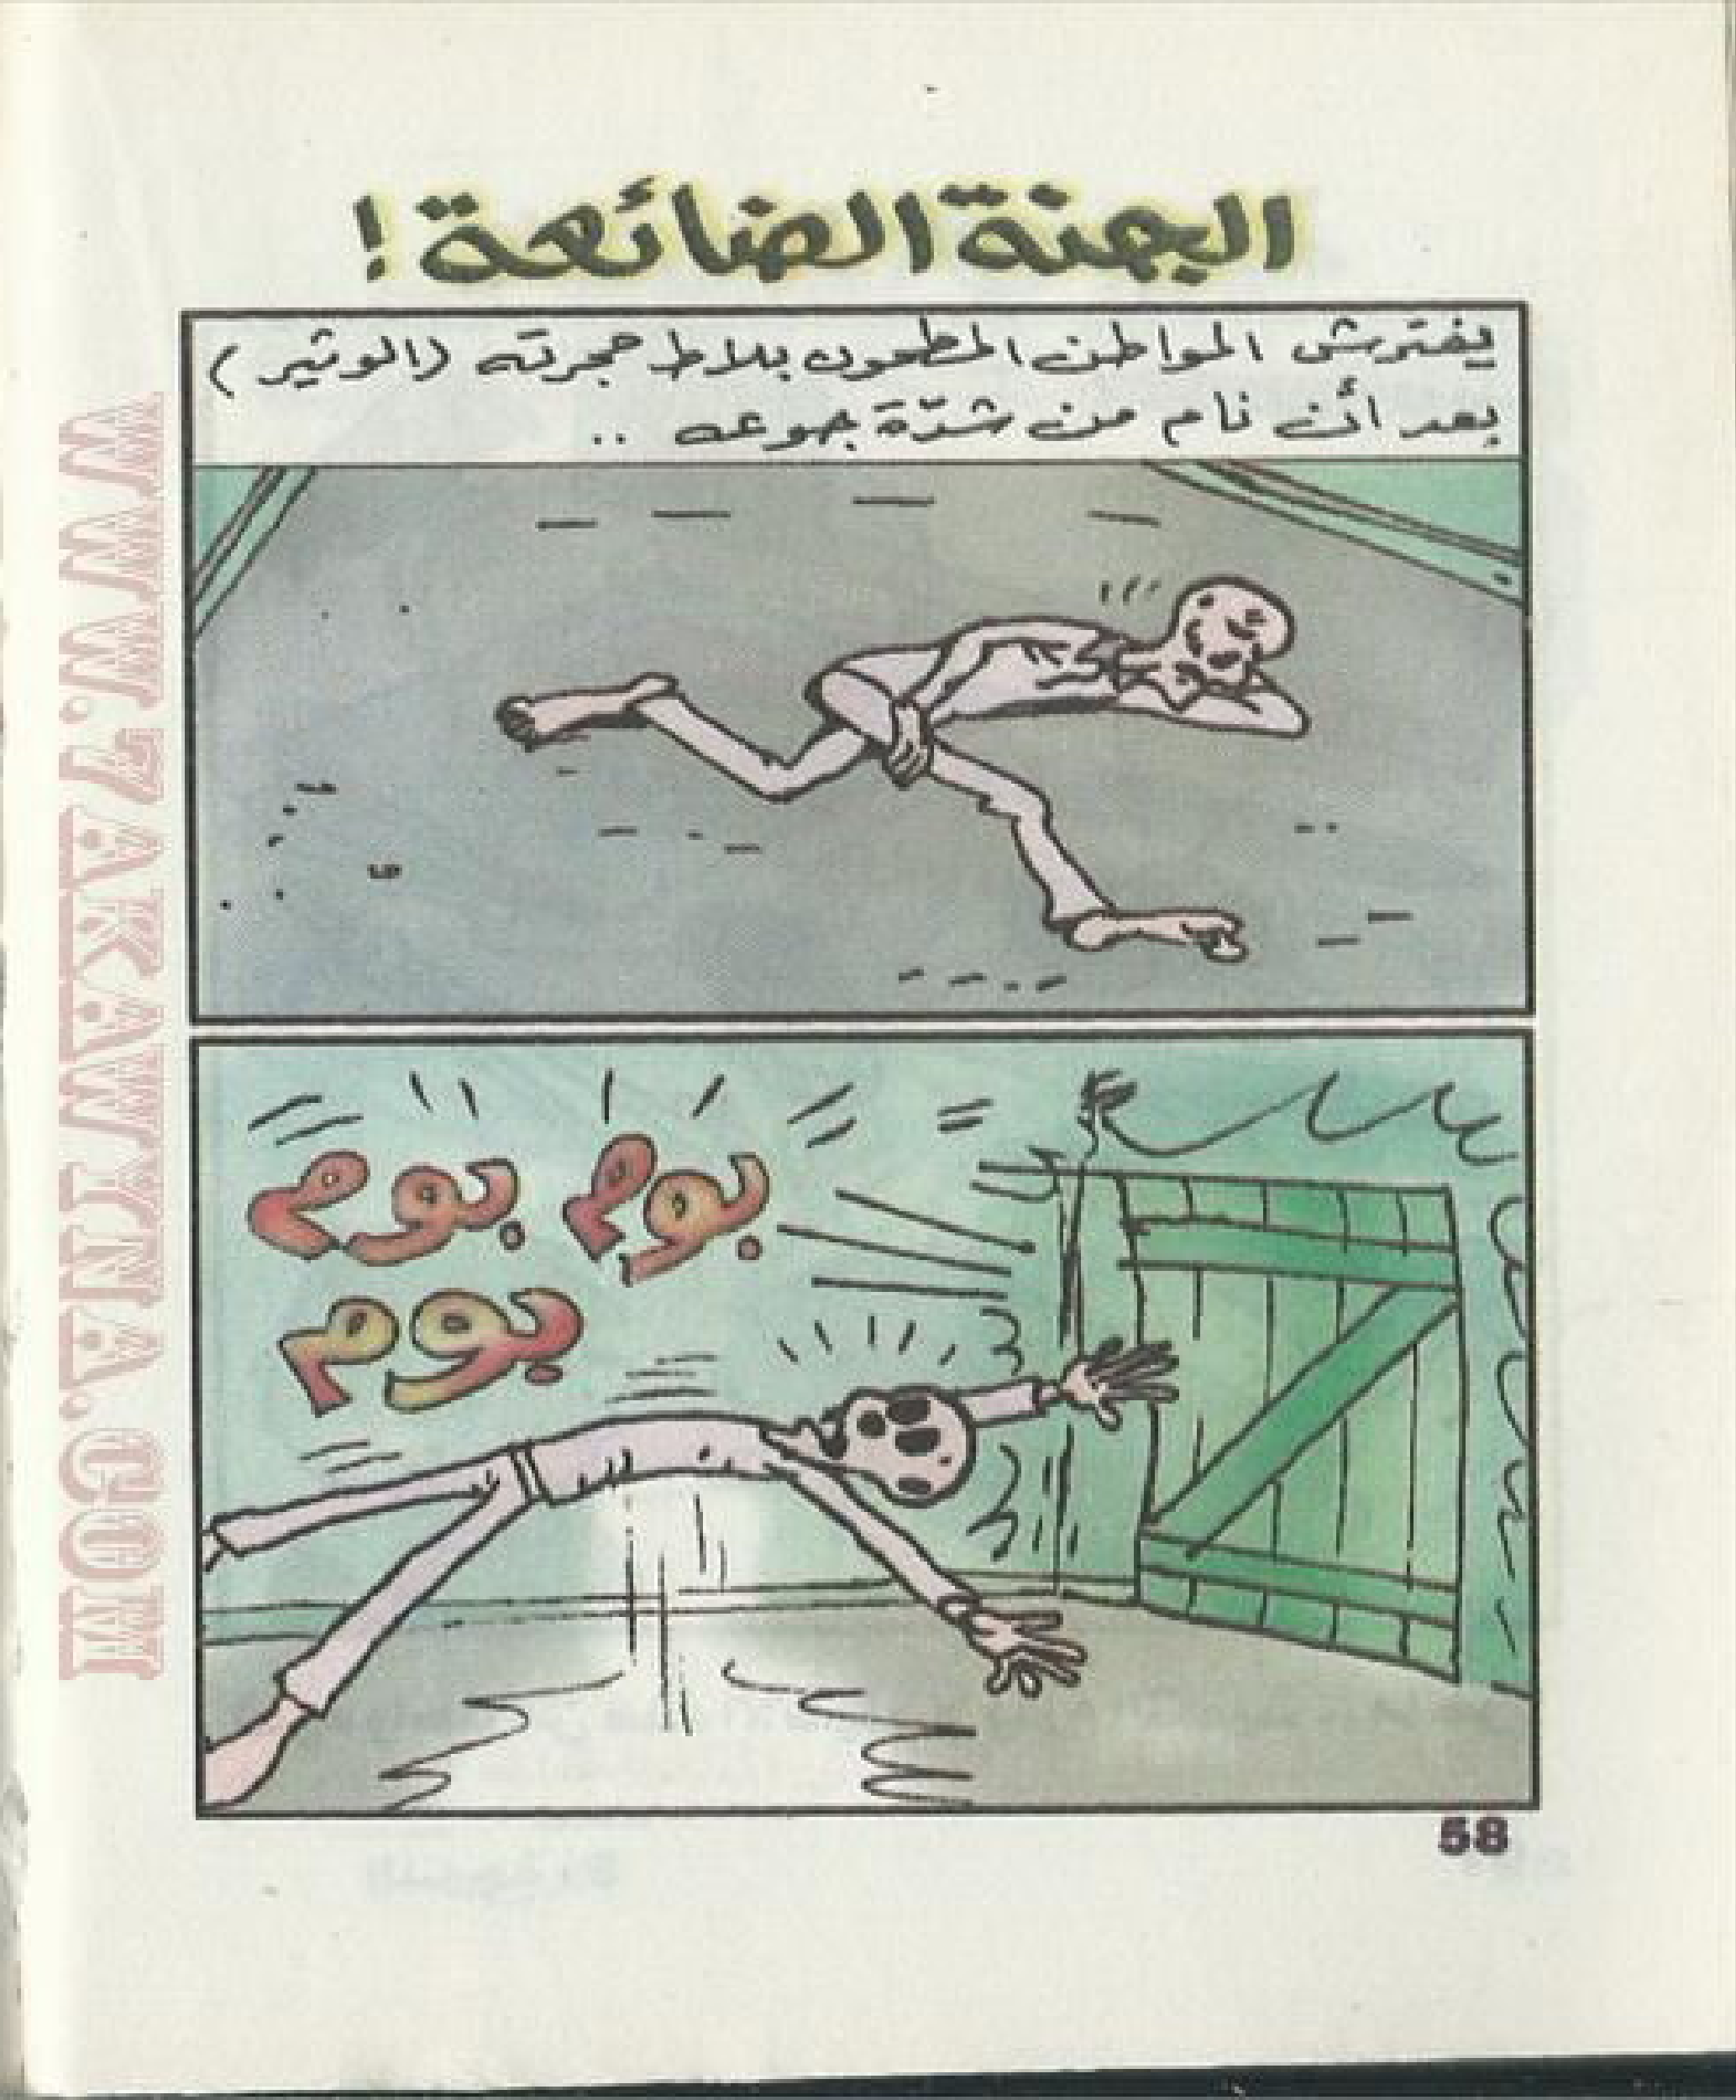 الجنة الضائعة !
يفترش المواطن المطحون بلاط حجرته (الوثير)
بعد أن نام من شدّة جوعه ..
بوم بوم
بوم
58
WWW.7AKAWITNA.COM